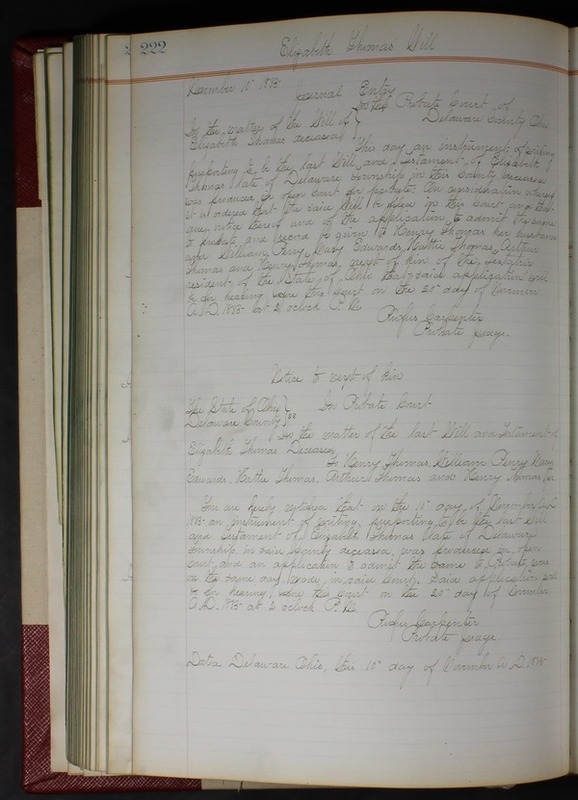 222
Elizabeth Thomas' Will
10" 1885
Journal Entry
In the Probate Court of
Delaware County Ohio
In the matter of the Will of
Elizabeth Thomas deceased
This day an instrument of writing
purporting to be the last Will and Testament of Elizabeth
Thomas late of Delaware township in this County deceased
was produced in open court for probate. On consideration whereof
it is ordered that the said Will be filed in this court and that
due notice thereof and of the application to admit the same
to probate and record be given to Henry Thomas her husband
and William Perry, Mary Edwards, Hattie Thomas, Arthur
Thomas and Henry Thomas, next of kin of the Testatrix
resident of the State of Ohio that said application will
be for hearing before this court on the 20" day of
A.D. 1885 at 2 oclock P.M.
Rufus Carpenter
Probate Judge.
Notice to next of kin
The State of Ohio
Delaware County } ss
In Probate Court
In the matter of the last Will and Testament of
Elizabeth Thomas Deceased
To Henry Thomas, William Perry, Mary
Edwards, Hattie Thomas, Arthur Thomas and Henry Thomas
You are hereby notified that on the 10" day of A.D.
1885 an instrument of writing, purporting to be the last Will
and Testament of Elizabeth Thomas late of Delaware
township in said County deceased, was produced in open
court and an application to admit the same to Probate, was
on the same day made in said Court. Said application will
be for hearing before this Court on the 20" day of
A.D. 1885 at 2 oclock P.M.
Rufus Carpenter
Probate Judge.
Delaware Ohio, this 10" day of November A.D. 1885